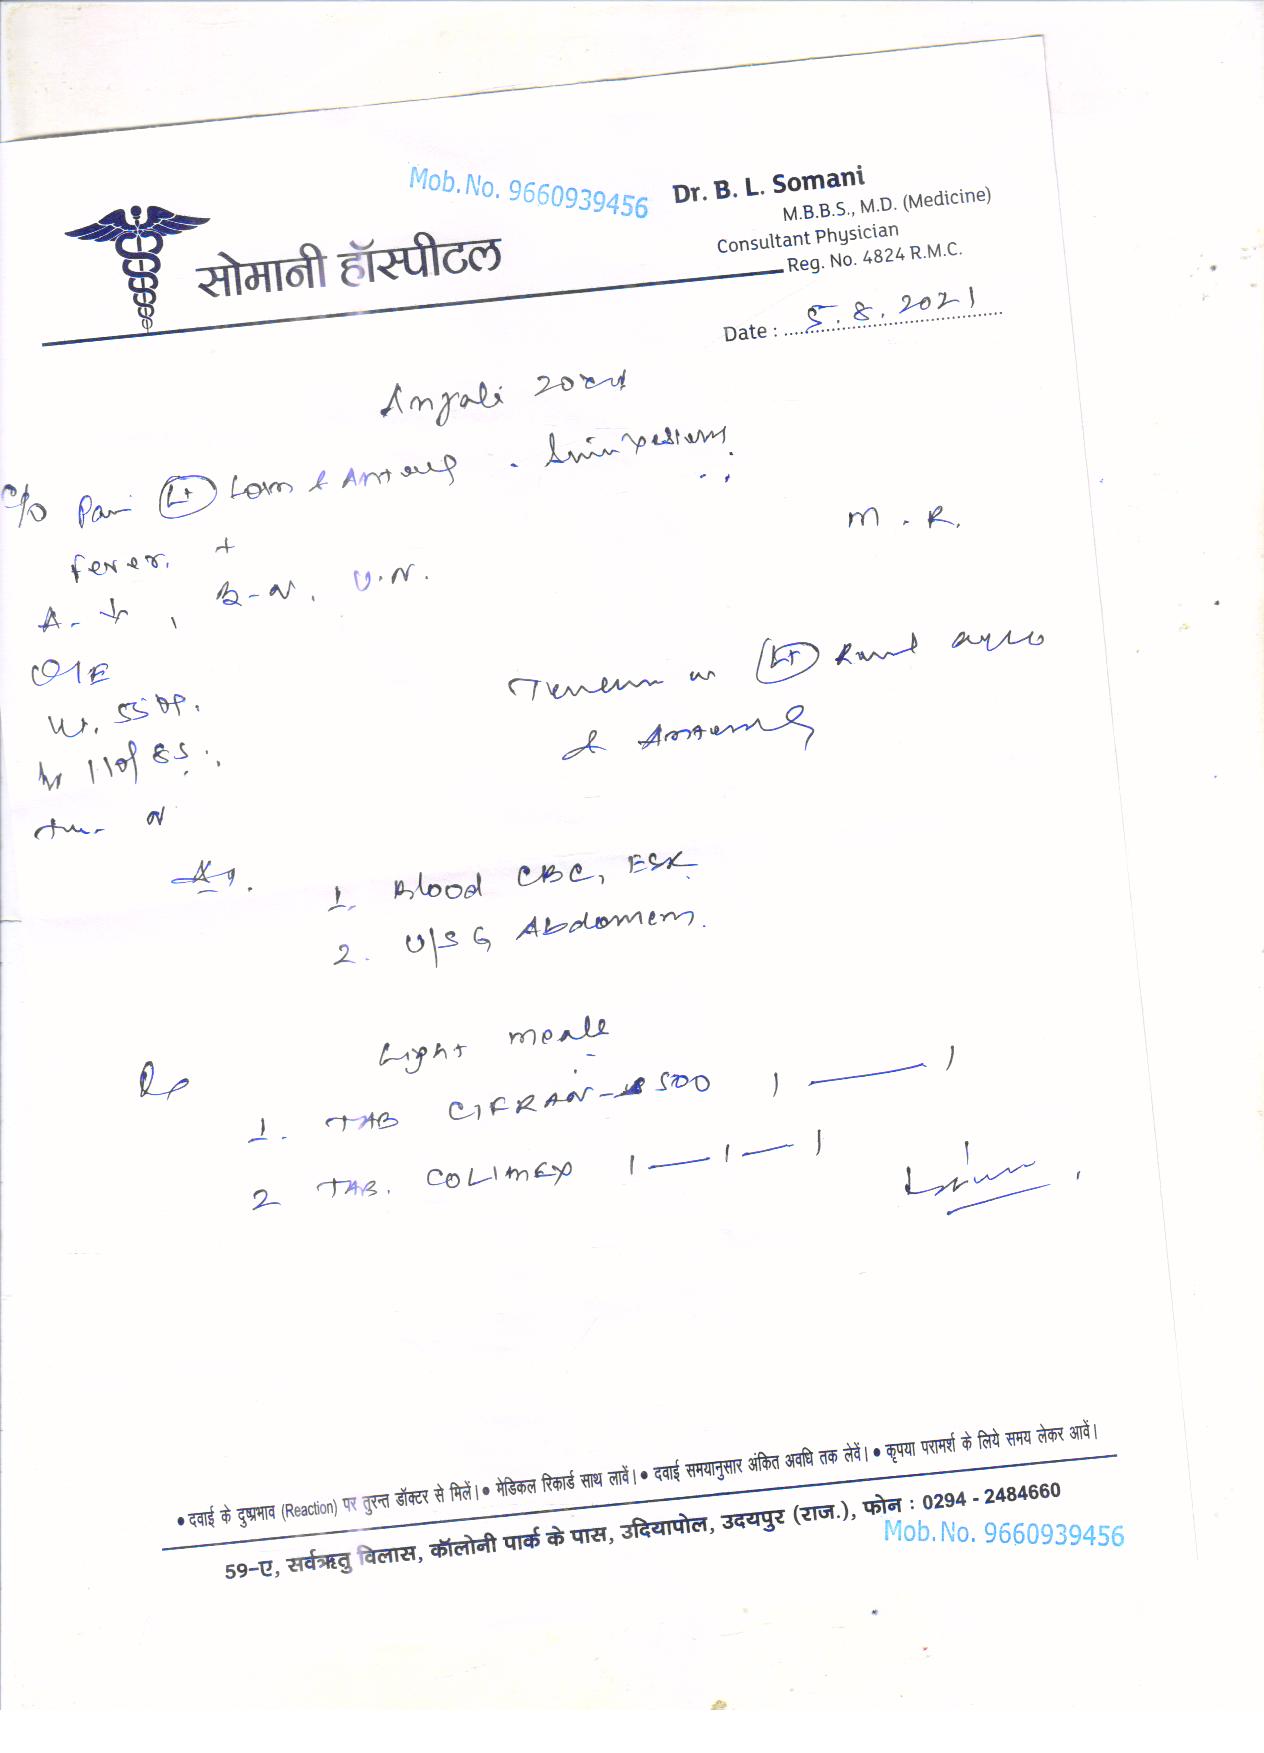 Mob. No. 9660939456
Dr. B. L. Somani
M.B.B.S., M.D. (Medicine)
Consultant Physician
Reg. No. 4824 R.M.C.
सोमानी हॉस्पीटल
Date : 5.8.2021
Anjali 20
C/o Pain Lt Loin &
fever. +
M. R.
A- ↓, B-N, U.N.
O/E
Wt. 55
in Lt Renal
&
110/85
N
1. Blood CBC, ESR
2. U/S G Abdomen.
Light meals
Rx
1. TAB CIFRAN- 500 1 — 1
2 TAB. COLIMEX 1 — 1 — 1
• दवाई के दुष्प्रभाव (Reaction) पर तुरन्त डॉक्टर से मिलें। • मेडिकल रिकार्ड साथ लावें। • दवाई समयानुसार अंकित अवधि तक लेवें। • कृपया परामर्श के लिये समय लेकर आवें।
59-ए, सर्वऋतु विलास, कॉलोनी पार्क के पास, उदियापोल, उदयपुर (राज.), फोन : 0294 - 2484660
Mob. No. 9660939456